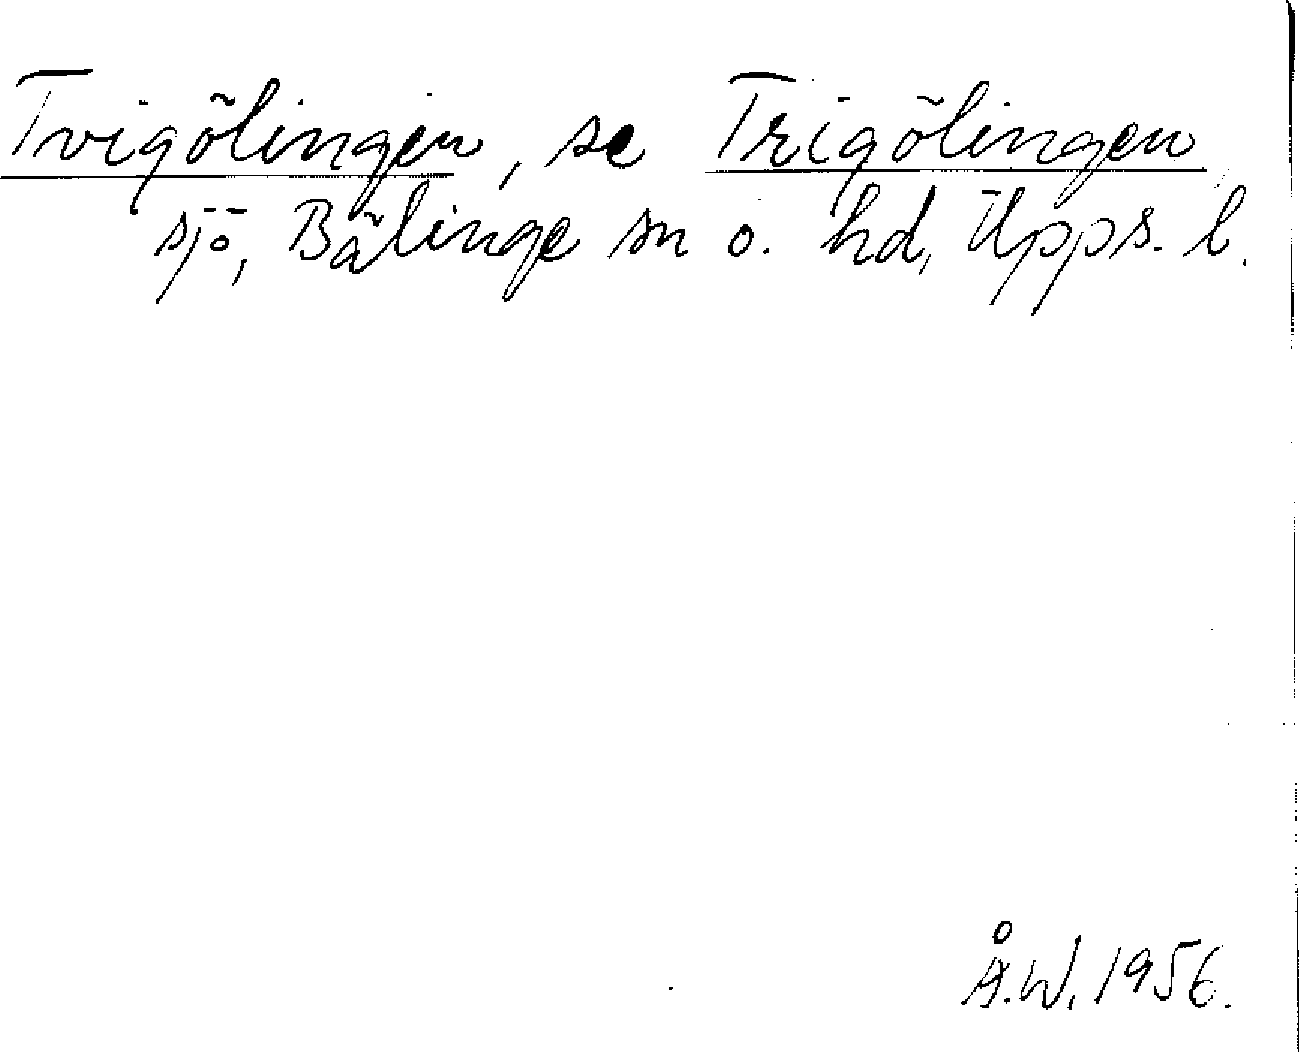 Tvigölingen, se Trigölingen
sjö, Bälinge sn o. hd, Upps. l.
Å.W. 1956.